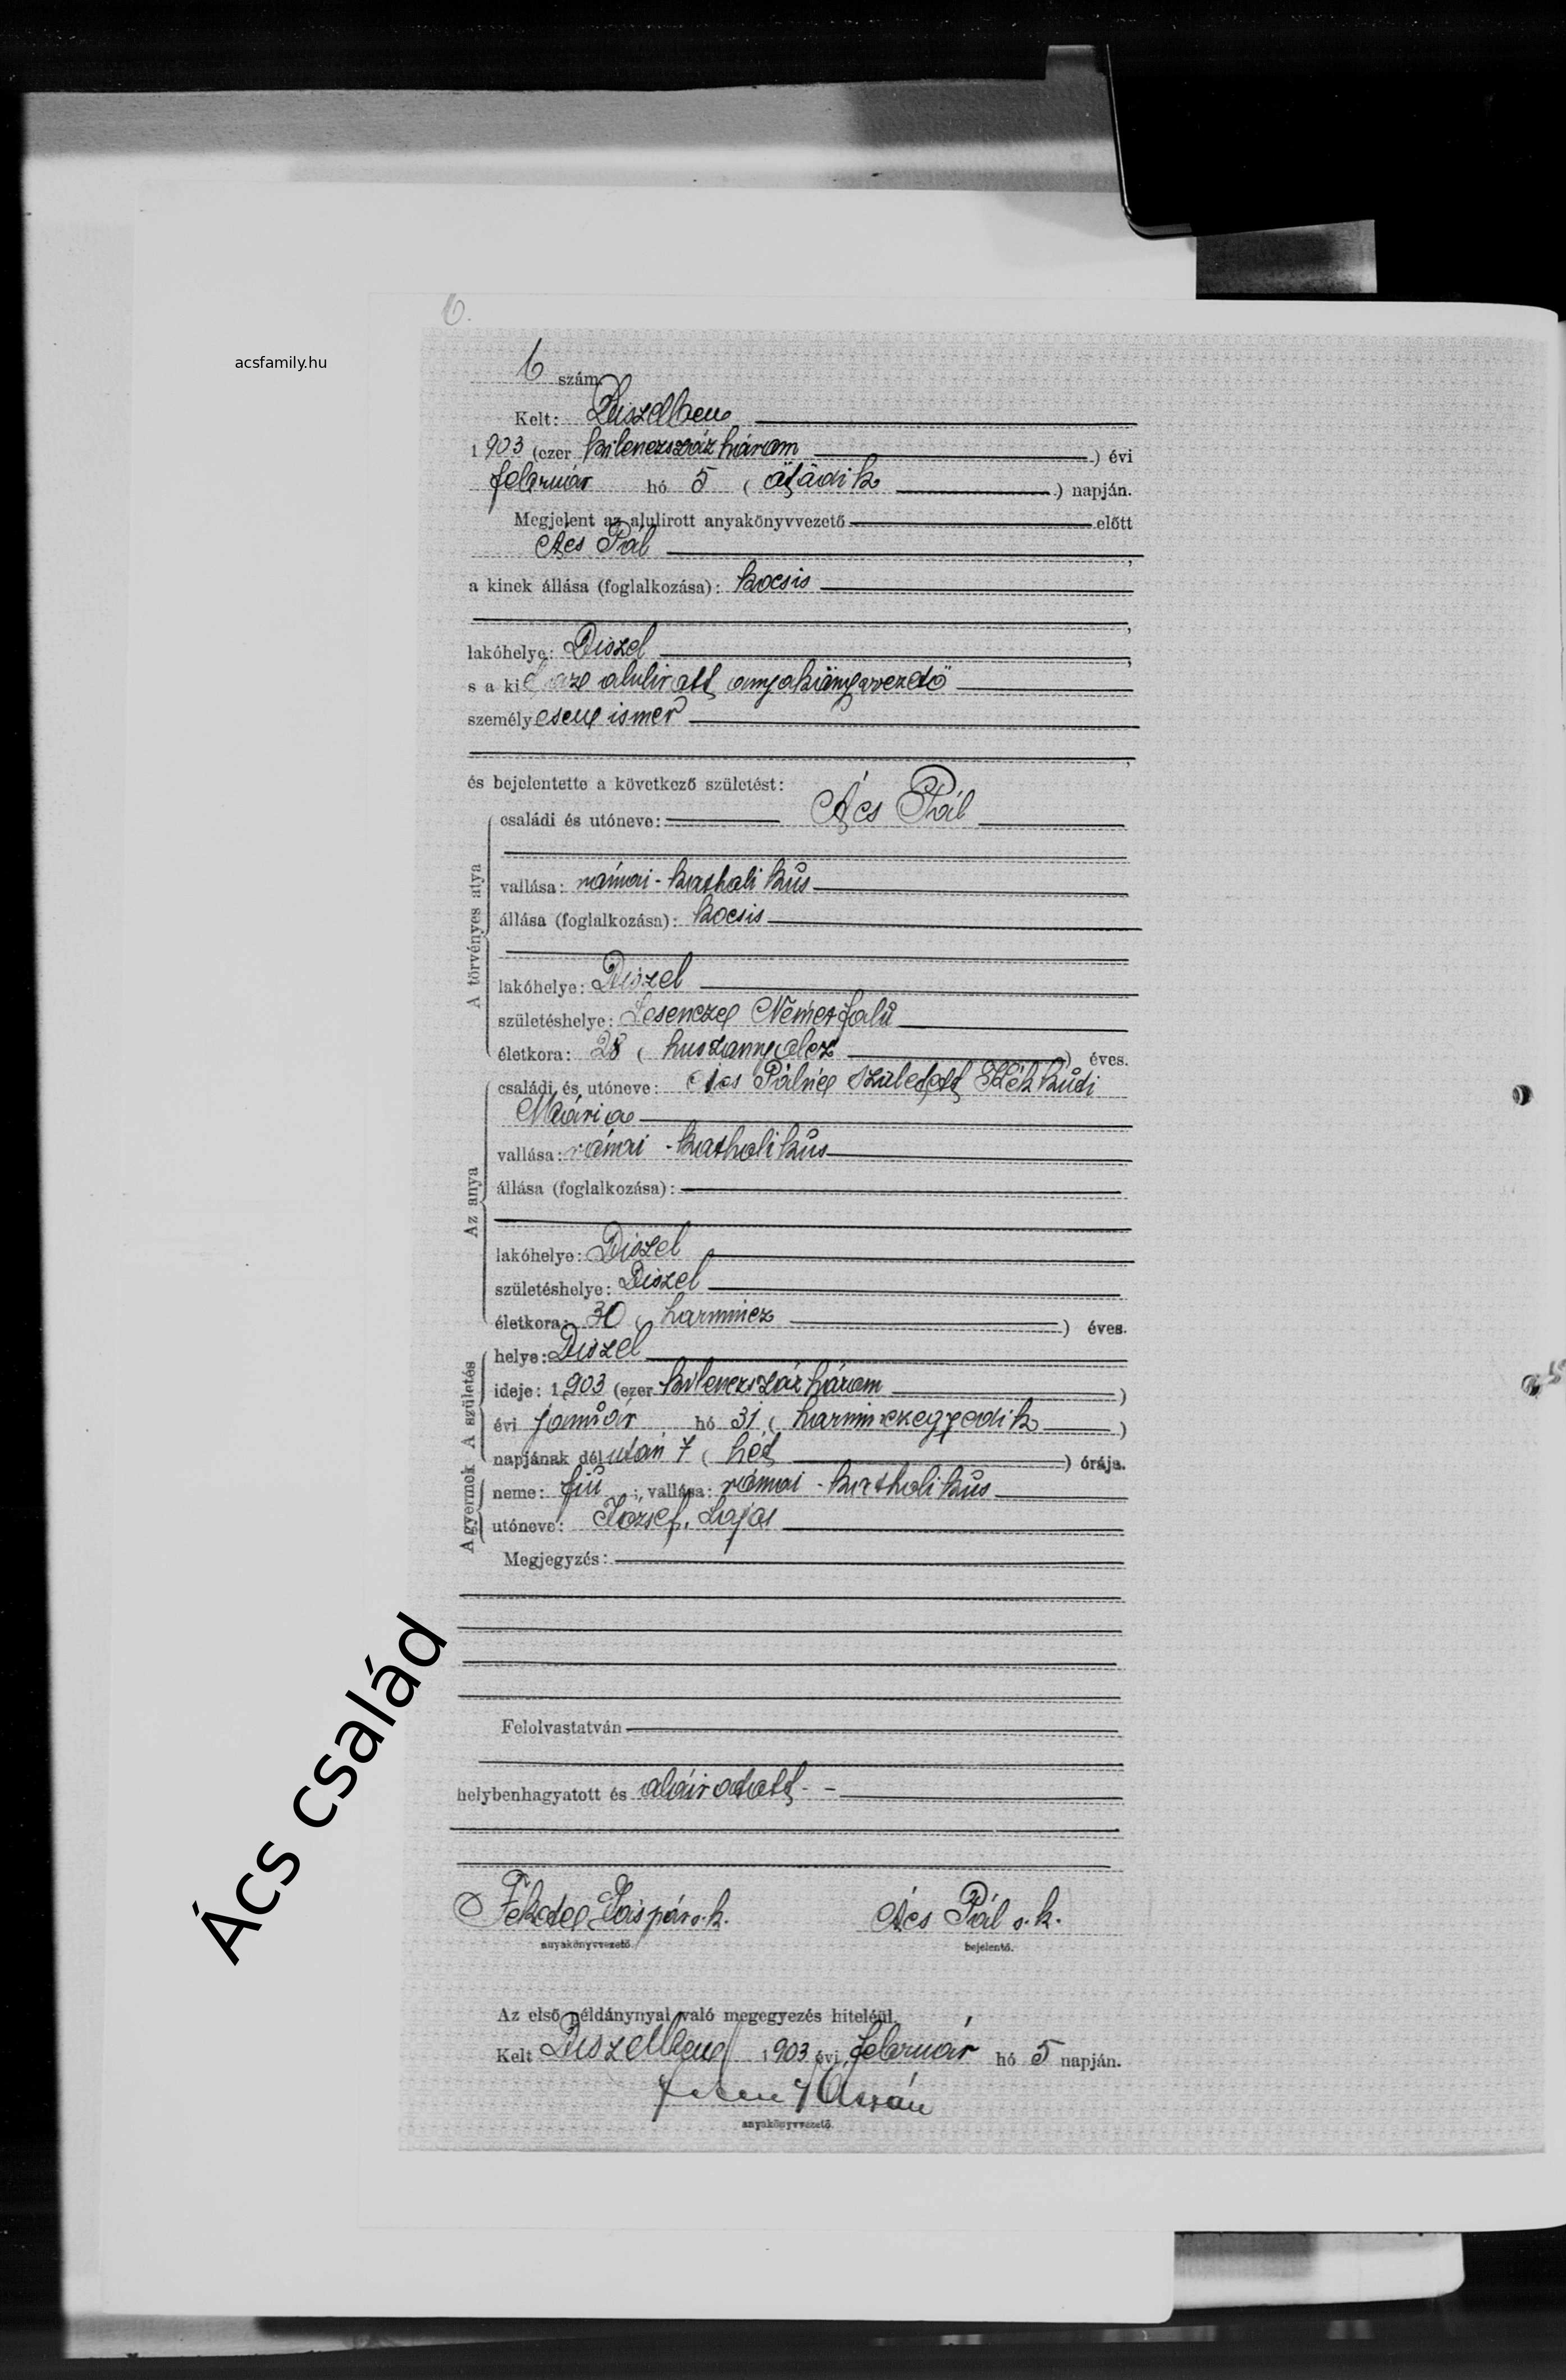 6.
acsfamily.hu
6 szám.
Kelt: Diszelben
1903 (ezer kilenczszázhárom) évi
február hó 5 (ötödik) napján.
Megjelent az alulirott anyakönyvvezető előtt
Ács Pál,
a kinek állása (foglalkozása): kocsis
,
lakóhelye: Diszel,
s a kit az alulirott anyakönyvvezető
személyesen ismer
,
és bejelentette a következő születést:
A törvényes atya
családi és utóneve: Ács Pál
vallása: római-katholikus
állása (foglalkozása): kocsis
lakóhelye: Diszel
születéshelye: Lesencze Németfalu
életkora: 28 (huszonnyolcz) éves.
Az anya
családi és utóneve: Ács Pálné született
Mária
vallása: római-katholikus
állása (foglalkozása):
lakóhelye: Diszel
születéshelye: Diszel
életkora: 30 (harmincz) éves.
A születés
helye: Diszel
ideje: 1903 (ezer kilenczszázhárom)
évi január hó 31 (harminczegyedik)
napjának délután 7 (hét) órája.
A gyermek
neme: fiú; vallása: római-katholikus
utóneve: József, Lajos
Megjegyzés:
Ács család
Felolvastatván
helybenhagyatott és aláiratott -
Fekete Gáspár s.k. Ács Pál s.k.
anyakönyvvezető. bejelentő.
Az első példánynyal való megegyezés hiteléül.
Kelt Diszelben 1903 évi február hó 5 napján.
anyakönyvvezető.